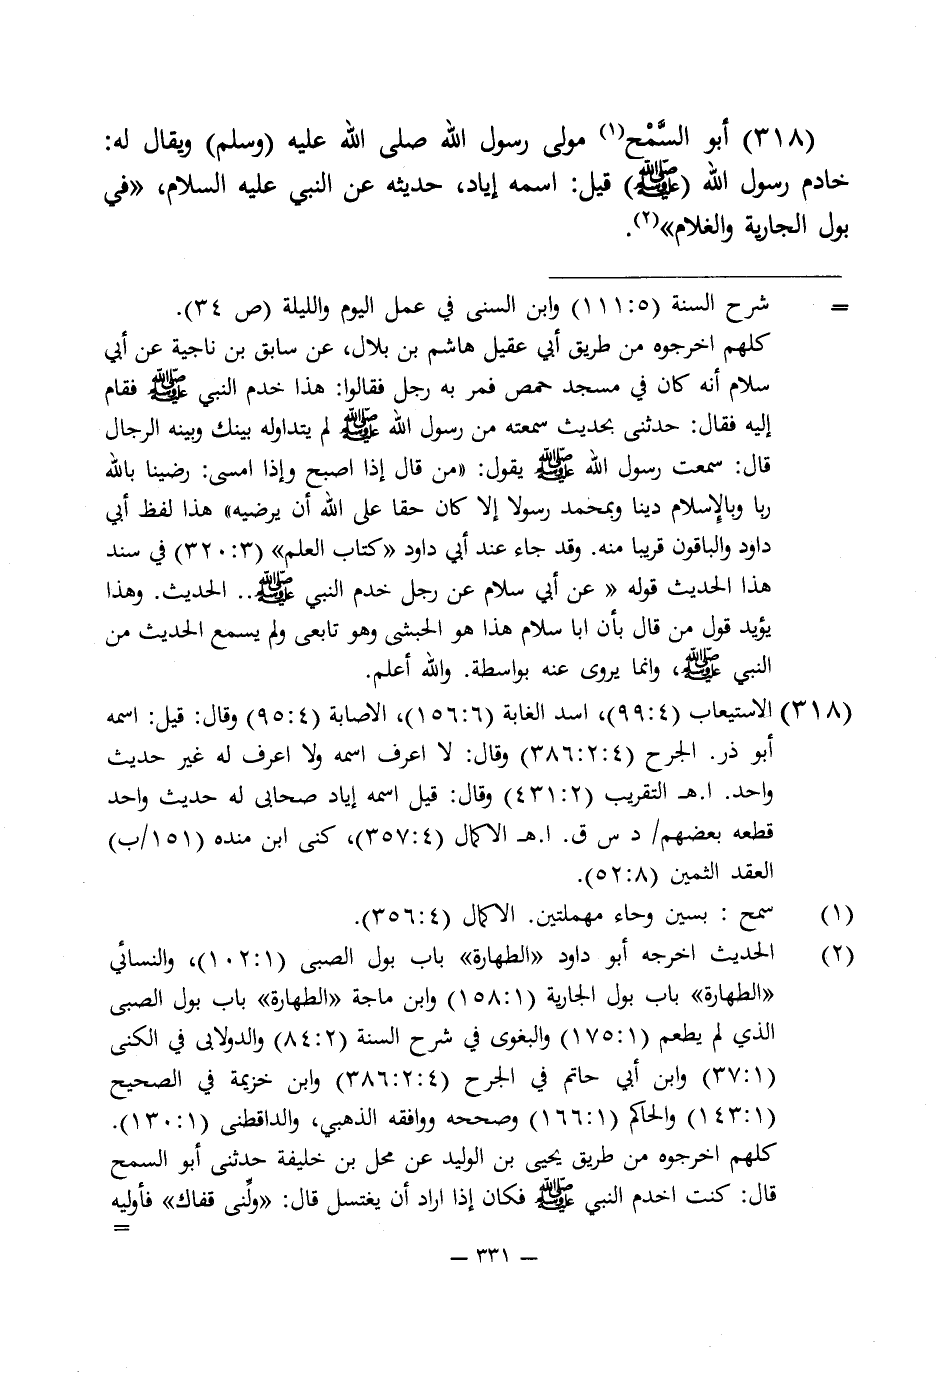 (٣١٨) أبو السَّمْح(١) مولى رسول الله صلى الله عليه (وسلم) ويقال له:
خادم رسول الله (ﷺ) قيل: اسمه إياد، حديثه عن النبي عليه السلام، «في
بول الجارية والغلام»(٢).
= شرح السنة (٥:١١١) وابن السنى في عمل اليوم والليلة (ص ٣٤).
كلهم اخرجوه من طريق أبي عقيل هاشم بن بلال، عن سابق بن ناجية عن أبي
سلام أنه كان في مسجد حمص فمر به رجل فقالوا: هذا خدم النبي ﷺ فقام
إليه فقال: حدثنى بحديث سمعته من رسول الله ﷺ لم يتداوله بينك وبينه الرجال
قال: سمعت رسول الله ﷺ يقول: «من قال إذا اصبح وإذا امسى: رضينا بالله
ربا وبالإسلام دينا وبمحمد رسولا إلا كان حقا على الله أن يرضيه» هذا لفظ أبي
داود والباقون قريبا منه. وقد جاء عند أبي داود «كتاب العلم» (٣:٣٢٠) في سند
هذا الحديث قوله « عن أبي سلام عن رجل خدم النبي ﷺ.. الحديث. وهذا
يؤيد قول من قال بأن ابا سلام هذا هو الحبشى وهو تابعى ولم يسمع الحديث من
النبي ﷺ، وانما يروى عنه بواسطة. والله أعلم.
(٣١٨) الاستيعاب (٤:٩٩)، اسد الغابة (٦:١٥٦)، الاصابة (٤:٩٥) وقال: قيل: اسمه
أبو ذر. الجرح (٤:٢:٣٨٦) وقال: لا اعرف اسمه ولا اعرف له غير حديث
واحد. ا.هـ التقريب (٢:٤٣١) وقال: قيل اسمه إياد صحابى له حديث واحد
قطعه بعضهم/ د س ق. ا.هـ الاكمال (٤:٣٥٧)، كنى ابن منده (١٥١/ب)
العقد الثمين (٨:٥٢).
(١) سمح : بسين وحاء مهملتين. الاكمال (٤:٣٥٦).
(٢) الحديث اخرجه أبو داود «الطهارة» باب بول الصبى (١:١٠٢)، والنسائي
«الطهارة» باب بول الجارية (١:١٥٨) وابن ماجة «الطهارة» باب بول الصبى
الذي لم يطعم (١:١٧٥) والبغوى في شرح السنة (٢:٨٤) والدولابى في الكنى
(١:٣٧) وابن أبي حاتم في الجرح (٤:٢:٣٨٦) وابن خزيمة في الصحيح
(١:١٤٣) والحاكم (١:١٦٦) وصححه ووافقه الذهبي، والداقطنى (١:١٣٠).
كلهم اخرجوه من طريق يحيى بن الوليد عن محل بن خليفة حدثنى أبو السمح
قال: كنت اخدم النبي ﷺ فكان إذا اراد أن يغتسل قال: «ولِّنى قفاك» فأوليه
=
— ٣٣١ —